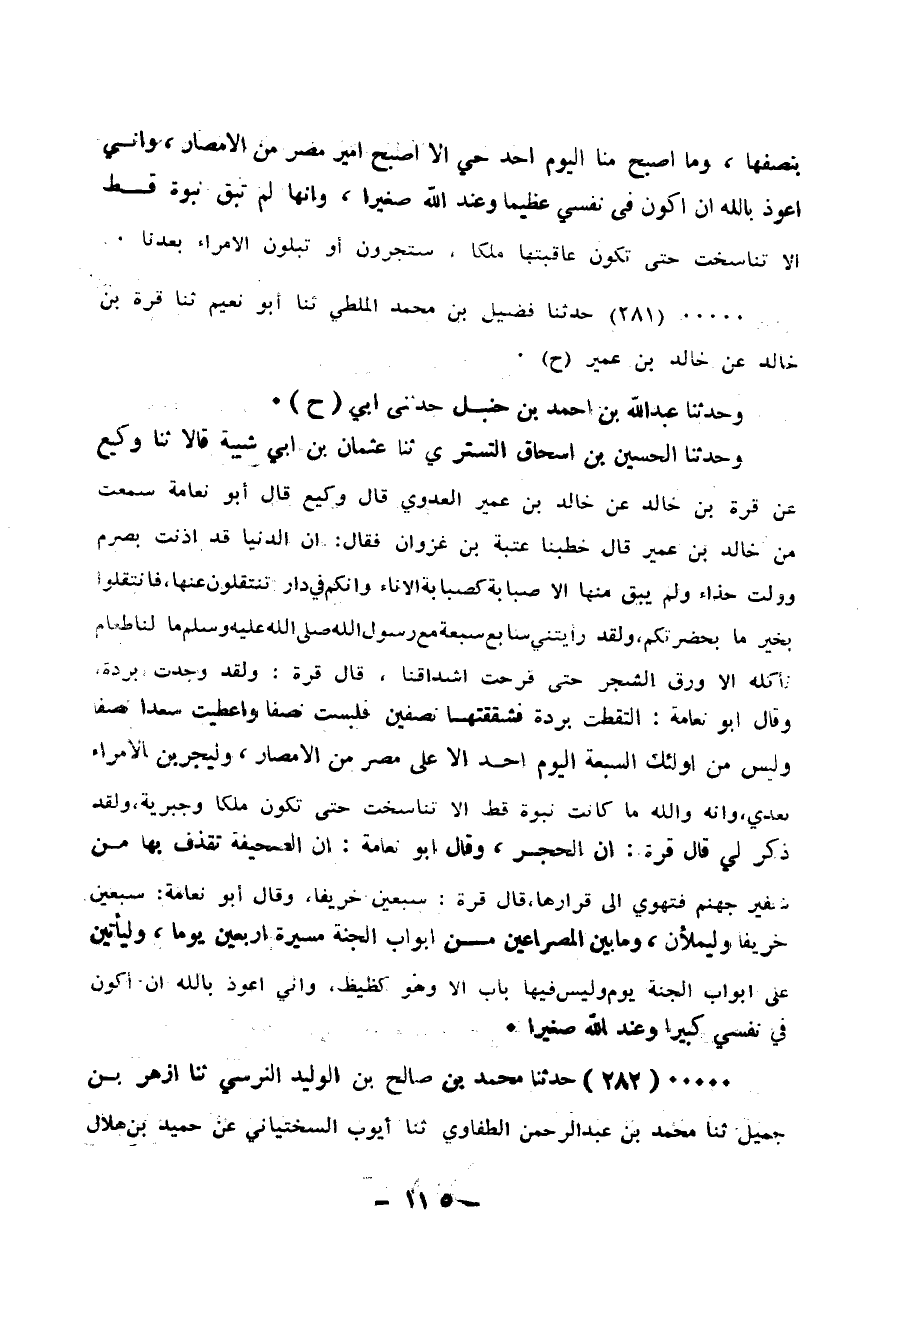 بنصفها ، وما اصبح منا اليوم احد حي الا اصبح امير مصر من الامصار ، واني
اعوذ بالله ان اكون في نفسي عظيما وعند الله صغيرا ، وانها لم تبق نبوة قط
الا تناسخت حتى تكون عاقبتها ملكا ، ستجرون أو تبلون الامراء بعدنا ٠
٠٠٠٠٠ (٢٨١) حدثنا فضيل بن محمد الملطي ثنا أبو نعيم ثنا قرة بن
خالد عن خالد بن عمير (ح) ٠
وحدثنا عبدالله بن احمد بن حنبل حدثنى ابي ( ح ) ٠
وحدثنا الحسين بن اسحاق التستر ي ثنا عثمان بن ابي شيبة قالا ثنا وكيع
عن قرة بن خالد عن خالد بن عمير العدوي قال وكيع قال أبو نعامة سمعت
من خالد بن عمير قال خطبنا عتبة بن غزوان فقال: ان الدنيا قد اذنت بصرم
وولت حذاء ولم يبق منها الا صبابة كصبابة الاناء وانكم في دار تنتقلون عنها، فانتقلوا
بخير ما بحضرتكم، ولقد رأيتني سابع سبعة مع رسول الله صلى الله عليه وسلم ما لنا طعام
نأكله الا ورق الشجر حتى قرحت اشداقنا ، قال قرة : ولقد وجدت بردة،
وقال ابو نعامة : التقطت بردة فشققتها نصفين فلبست نصفا واعطيت سعدا نصفا
وليس من اولئك السبعة اليوم احد الا على مصر من الامصار ، وليجربن الامراء
بعدي، وانه والله ما كانت نبوة قط الا تناسخت حتى تكون ملكا وجبرية، ولقد
ذكر لي قال قرة : ان الحجر ، وقال ابو نعامة : ان الصحيفة تقذف بها من
شفير جهنم فتهوي الى قرارها، قال قرة : سبعين خريفا، وقال أبو نعامة: سبعين
خريفا وليملأن ، وما بين المصراعين من ابواب الجنة مسيرة اربعين يوما ، وليأتين
على ابواب الجنة يوم وليس فيها باب الا وهو كظيظ، واني اعوذ بالله ان أكون
في نفسي كبيرا وعند الله صغيرا ٠
٠٠٠٠٠ ( ٢٨٢ ) حدثنا محمد بن صالح بن الوليد النرسي ثنا ازهر بن
جميل ثنا محمد بن عبدالرحمن الطفاوي ثنا أيوب السختياني عن حميد بن هلال
— ١١٥ —